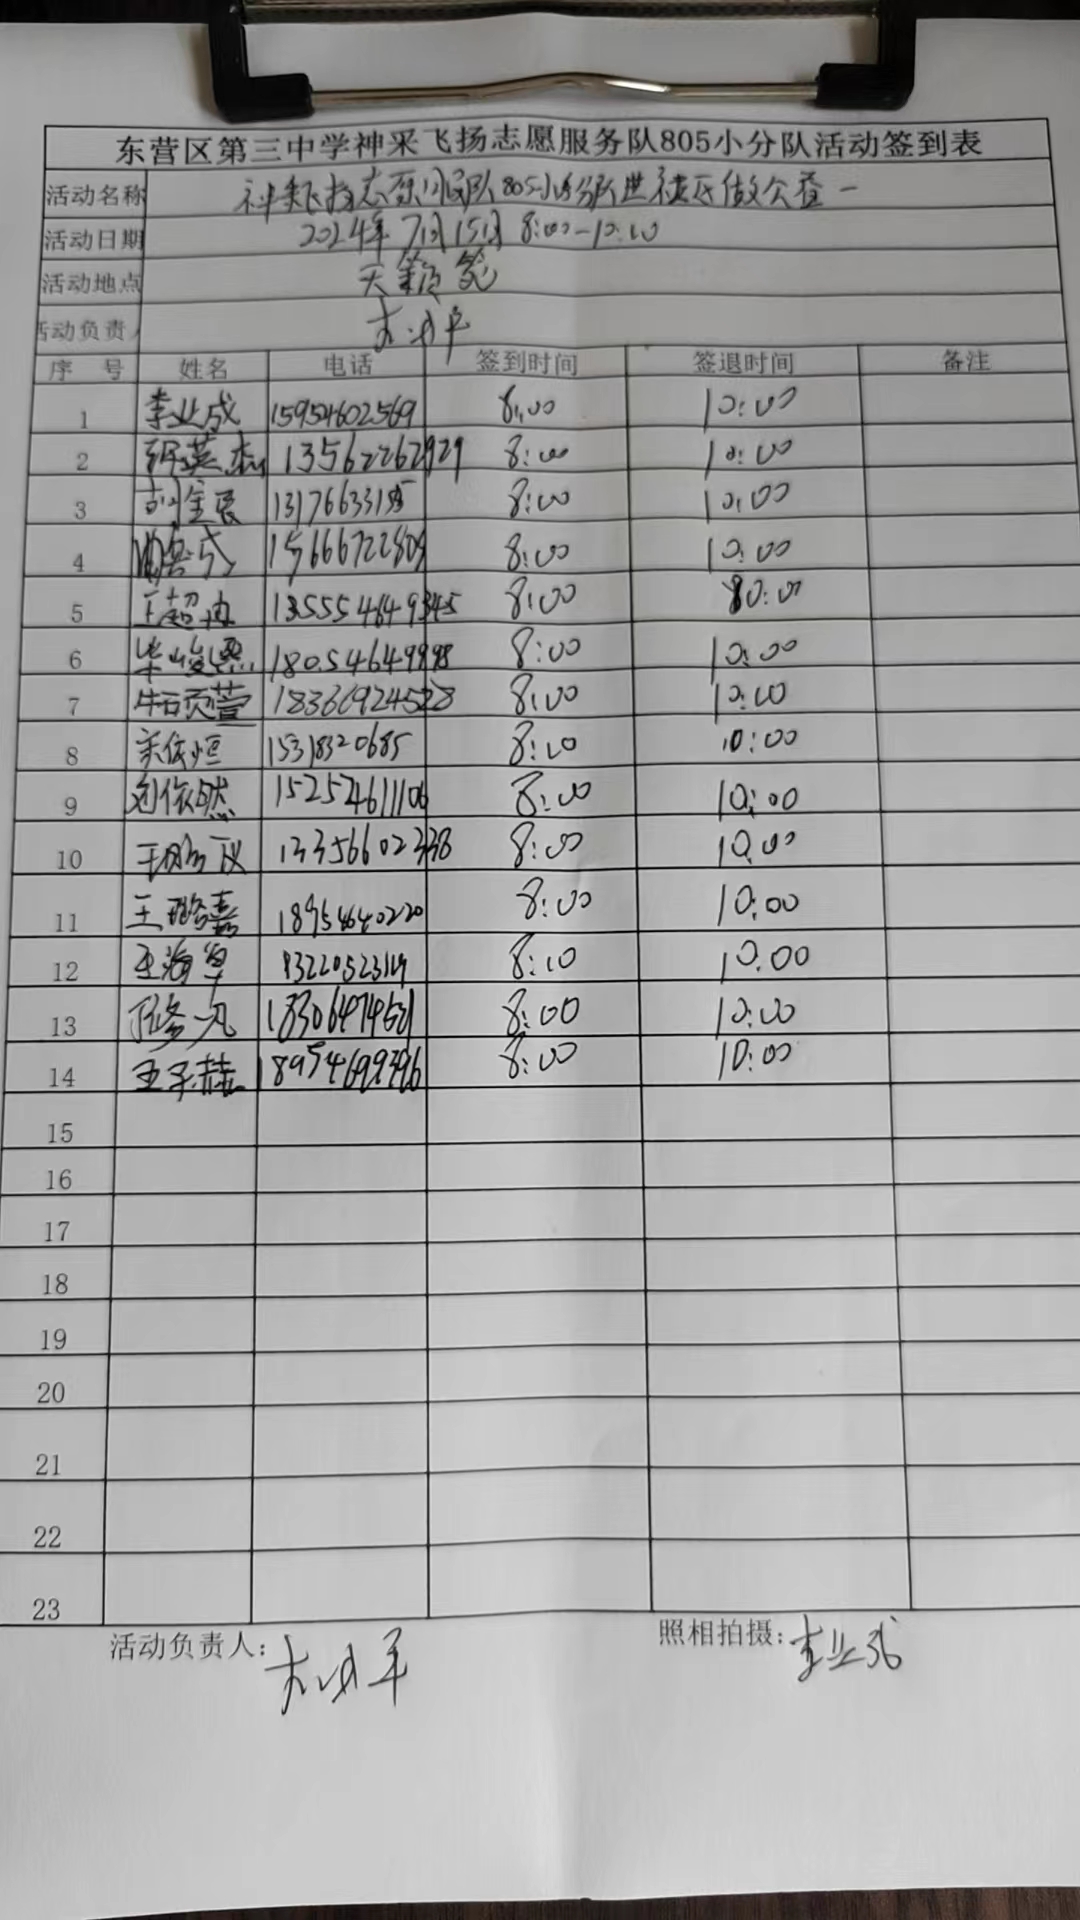 东营区第三中学神采飞扬志愿服务队805小分队活动签到表
活动名称 神采飞扬志愿服务队805小分队进社区做公益一
活动日期 2024年7月15日 8:00-10:00
活动地点 天籁苑
活动负责人
序 号 姓名 电话 签到时间 签退时间 备注
1 李业成 15954602569 8:00 10:00
2 英杰 13562262929 8:00 10:00
3 8:00 10:00
4 15666722809 8:00 10:00
5 王超冉 8:00 10:00
6 18054649898 8:00 10:00
7 18366924528 8:00 10:00
8 宋依恒 15318320685 8:10 10:00
9 刘依然 15252461106 8:00 10:00
10 13356602338 8:00 10:00
11 王璐嘉 18954640220 8:00 10:00
12 王海 8:10 10:00
13 修凡 8:00 10:00
14 王子赫 8:00 10:00
15
16
17
18
19
20
21
22
23
活动负责人: 照相拍摄: 李业成